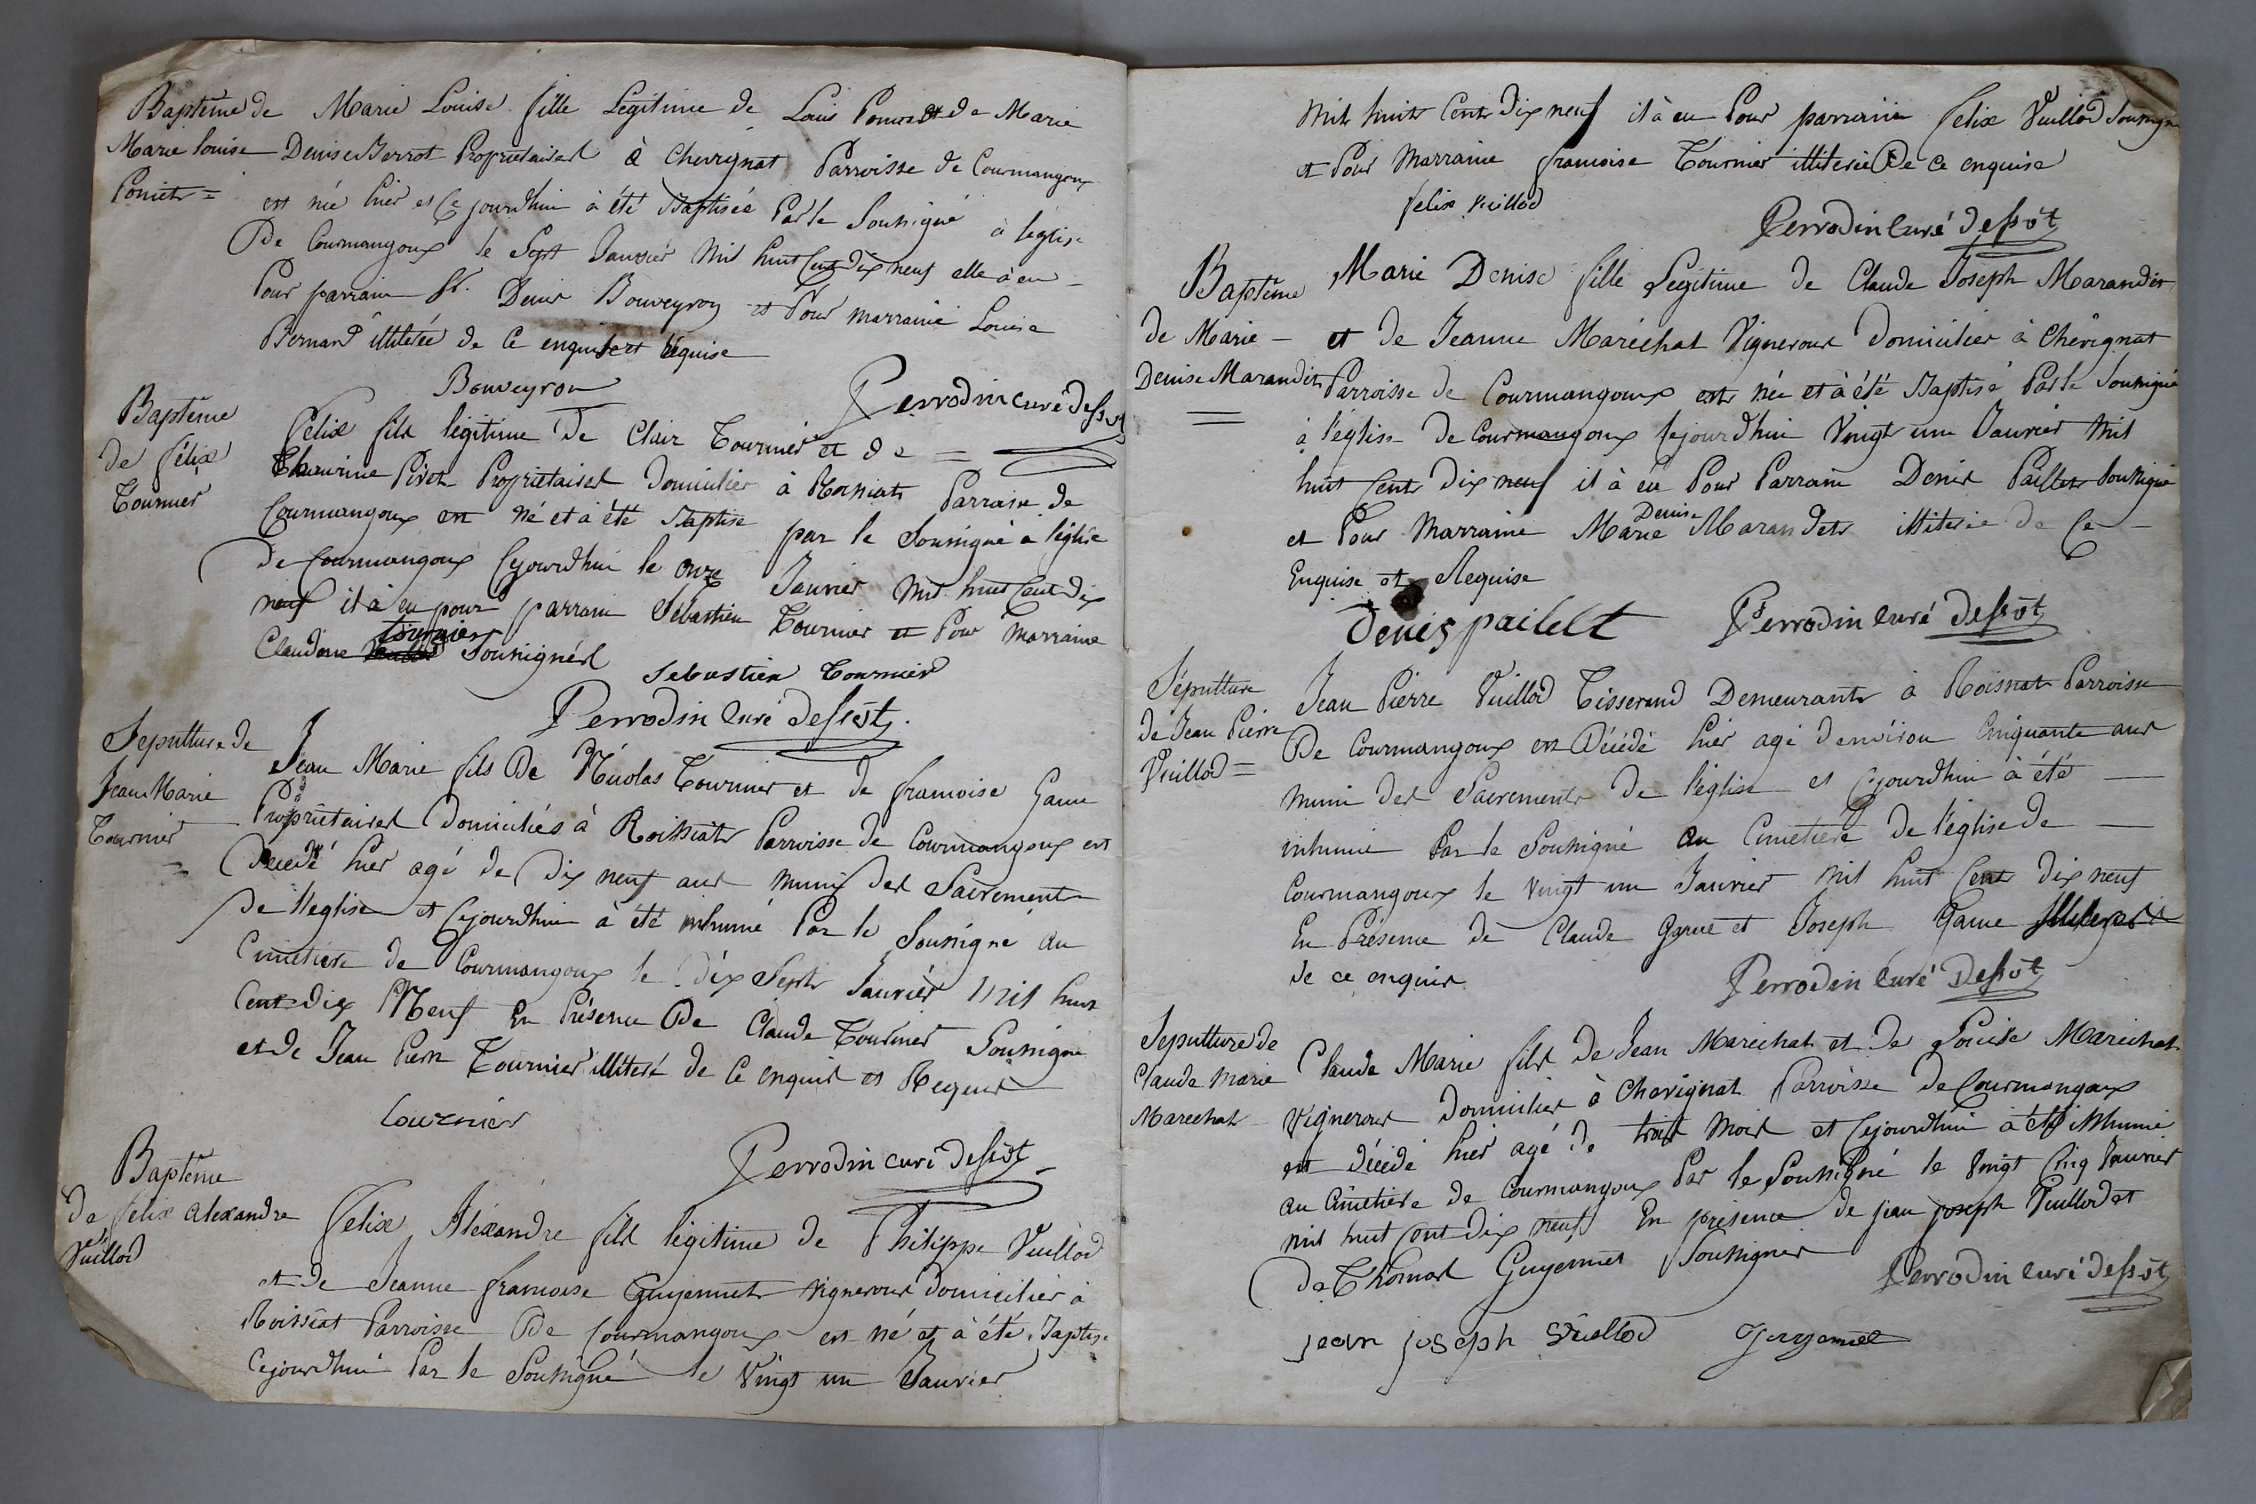 Baptême de
Marie louise
Poncet =
Marie Louise fille Légitime de Louis Poncet et de Marie
Denise Perrot Propriétaires à Chevignat Parroisse de Courmangoux
est née hier et Cejourdhui à été Baptisée Par le Soussigné à l'église
De Courmangoux le Sept Janvier Mil huit Cent Dix neuf elle à eu
Pour parrain Sr. Denis Bouveyron et Pour marraine Louise
Bernard illiterée de Ce enquise et requise
Bouveyron
Perrodin curé dessèt
Baptême
de félix
Tournier
Felix fils légitime De Clair Tournier et de =
Piroh Propriétaires Domicilies à Roissiat Parroisse de
Courmangoux est né et à été Baptise par le Soussigné à l'église
De Courmangoux Cejourdhui le onze Janvier Mil huit Cent Dix
neuf il à eu pour parrain Sébastien Tournier et Pour Marraine
Claudine Tournier Soussignés
Sebastien Tournier
Perrodin Curé dessèt
Sepulture de
Jean Marie
Tournier =
Jean Marie fils De Nicolas Tournier et de francoise Game
Propriétaires Domiciliés à Roissiat Parroisse de Courmangoux est
Décédé hier agé de Dix neuf ans munis des Sacrements
De l'eglise et Cejourdhui à été inhumé Par le Soussigné au
Cimetiere de Courmangoux le Dix Sept Janvier Mil huit
Cent Dix Neuf En Présence De Claude Tournier Soussigné
et de Jean Pierre Tournier illiteré de Ce enquis et Requis
Tournier
Perrodin curé dessèt
Baptême
de felix alexandre
Vuillod
Felix Alexandre fils légitime de Philippe Vuillod
et de Jeanne francoise Guyennet vignerons domicilies à
Roissiat Parroisse De Courmangoux est né et à été Baptise
Cejourdhui Par le Soussigné le Vingt un Janvier
mil huit Cent Dix neuf il à eu Pour parrain felix Vuillod Soussigné
et Pour Marraine francoise Tournier illiterée De ce enquise
felix vuillod
Perrodin Curé dessèt
Baptême
de Marie -
Denise Marandet
=
Marie Denise fille Légitime de Claude Joseph Marandet
et de Jeanne Maréchal Vignerons Domicilies à Chevignat
Parroisse de Courmangoux est née et à été Baptisé Par le Soussigné
à l'église De Courmangoux Cejourdhui Vingt un Janvier Mil
huit Cent Dix neuf il à eu Pour Parrain Denis Paillet Soussigné
et Pour Marraine Marie Denise Marandet illiterée De Ce -
Enquise et Requise
Denis pailelt
Perrodin Curé dessèt
Sépulture
de Jean Pierre
Vuillod =
Jean Pierre Vuillod Tisserand Demeurant à Roissiat Parroisse
De Courmangoux est Décédé hier agé d'environ Cinquante ans
muni des Sacrements De l'église et Cejourdhui à été -
inhumé Par le Soussigné au Cimetière De l'église De -
Courmangoux le vingt un Janvier mil huit Cent Dix neuf
En Présence De Claude Game et Joseph Game illiterés
de ce enquis
Perrodin Curé Dessèt
Sepulture de
Claude Marie
Marechal
Claude Marie fils De Jean Marechal et De Louise Marechal
vignerons Domicilies à Chevignat Parroisse De Courmangoux
est décédé hier agé de trois Mois et Cejourdhui à été inhumé
au Cimetière De Courmangoux Par le Soussigné le Vingt Cinq Janvier
mil huit Cent Dix neuf En présence de jean joseph Vuillod et
De Thomas Guyennet Soussignés
Perrodin Curé dessèt
jean joseph Vuillod
Guyennet